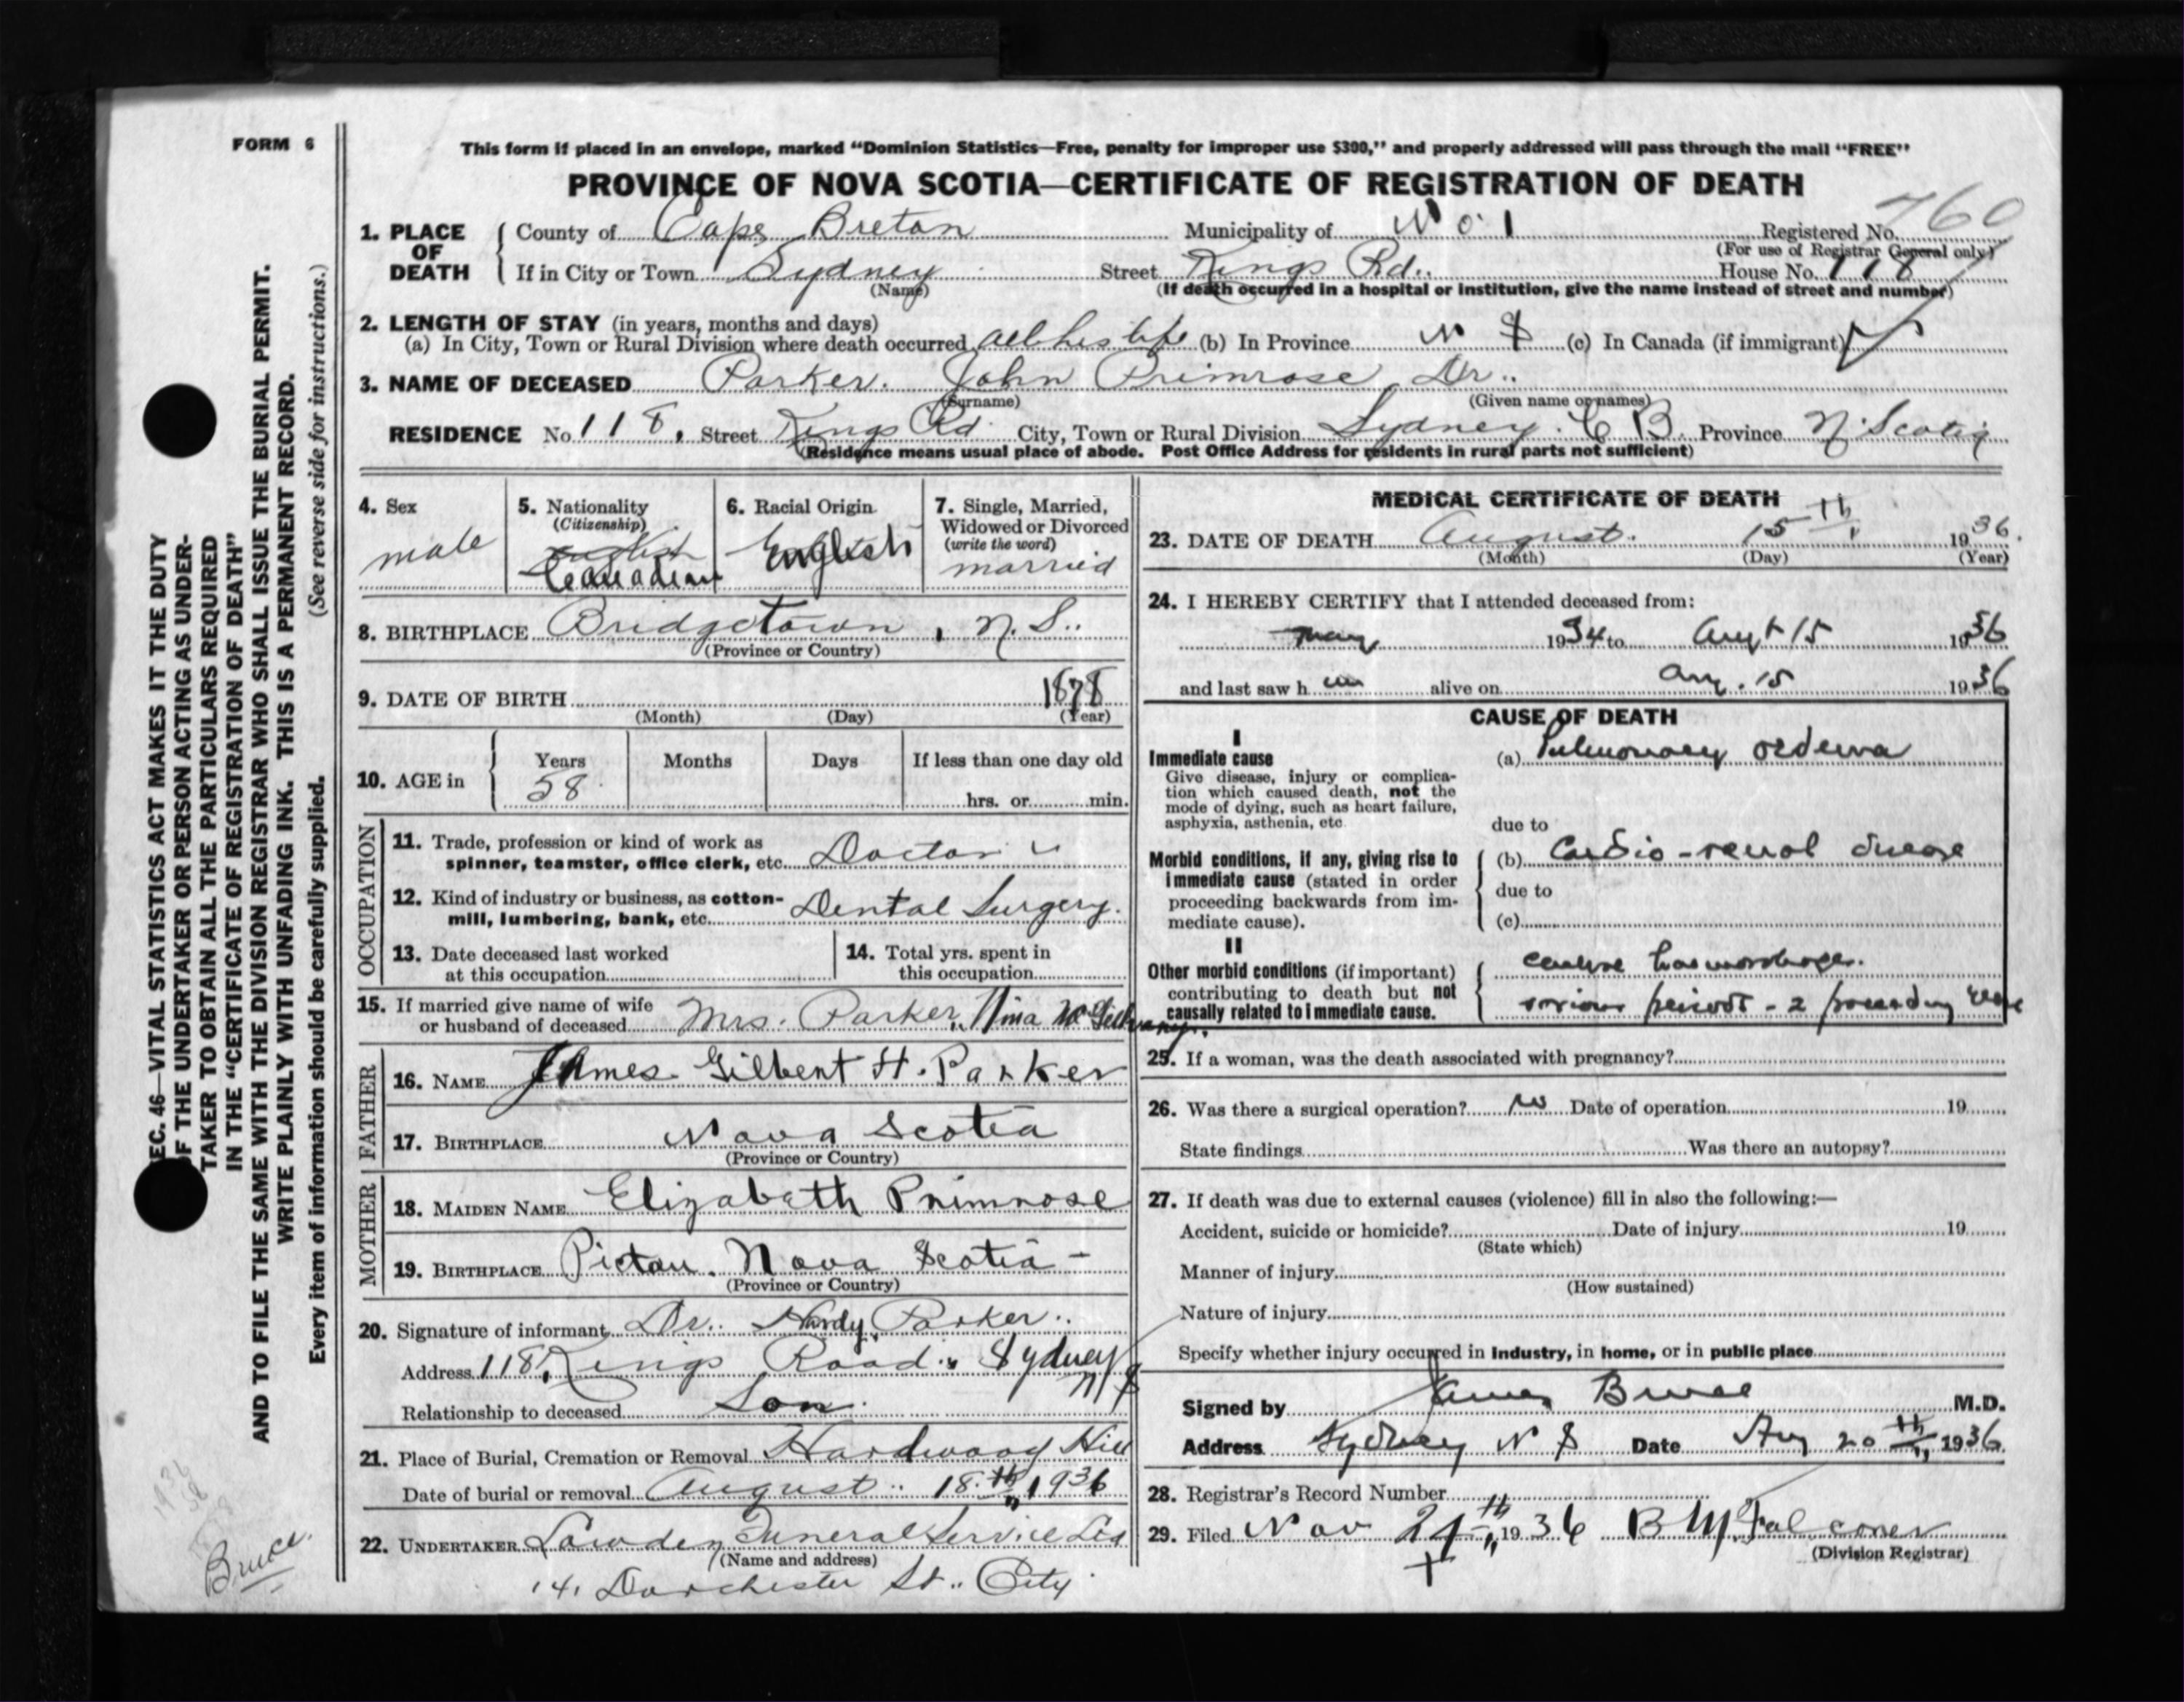 FORM 6
This form if placed in an envelope, marked "Dominion Statistics—Free, penalty for improper use $300," and properly addressed will pass through the mail "FREE"
PROVINCE OF NOVA SCOTIA—CERTIFICATE OF REGISTRATION OF DEATH
1. PLACE OF DEATH { County of Cape Breton Municipality of No 1 Registered No. 760
(For use of Registrar General only)
If in City or Town Sydney Street Kings Rd. House No. 118
(Name) (If death occurred in a hospital or institution, give the name instead of street and number)
2. LENGTH OF STAY (in years, months and days)
(a) In City, Town or Rural Division where death occurred all his life (b) In Province N S (c) In Canada (if immigrant)
3. NAME OF DECEASED Parker. John Primrose, Dr..
(Surname) (Given name or names)
RESIDENCE No. 118, Street Kings Rd City, Town or Rural Division Sydney. C B. Province N. Scotia
(Residence means usual place of abode. Post Office Address for residents in rural parts not sufficient)
4. Sex male
5. Nationality (Citizenship) English Canadian
6. Racial Origin English
7. Single, Married, Widowed or Divorced (write the word) married
8. BIRTHPLACE Bridgetown, N.S..
(Province or Country)
9. DATE OF BIRTH 1878
(Month) (Day) (Year)
10. AGE in { Years 58 Months Days If less than one day old
hrs. or min.
OCCUPATION
11. Trade, profession or kind of work as
spinner, teamster, office clerk, etc. Doctor
12. Kind of industry or business, as cotton-
mill, lumbering, bank, etc. Dental Surgery.
13. Date deceased last worked
at this occupation
14. Total yrs. spent in
this occupation
15. If married give name of wife
or husband of deceased Mrs. Parker, Nina McGillvary.
FATHER
16. NAME James Gilbert H. Parker
17. BIRTHPLACE Nova Scotia
(Province or Country)
MOTHER
18. MAIDEN NAME Elizabeth Primrose
19. BIRTHPLACE Pictou. Nova Scotia –
(Province or Country)
20. Signature of informant Dr.. Hardy Parker..
Address 118, Kings Road, Sydney N S
Relationship to deceased Son.
21. Place of Burial, Cremation or Removal Hardwood Hill
Date of burial or removal August.. 18.th, 1936
22. UNDERTAKER Lowden Funeral Service Ltd
(Name and address)
141 Dorchester St.. City
MEDICAL CERTIFICATE OF DEATH
23. DATE OF DEATH August. 15th. 1936.
(Month) (Day) (Year)
24. I HEREBY CERTIFY that I attended deceased from:
May 1934 to Augt 15 1936
and last saw h im alive on Aug. 15 1936
CAUSE OF DEATH
I
Immediate cause (a) Pulmonary oedema
Give disease, injury or complica-
tion which caused death, not the
mode of dying, such as heart failure,
asphyxia, asthenia, etc.
due to
Morbid conditions, if any, giving rise to (b) Cardio-renal disease
immediate cause (stated in order due to
proceeding backwards from im-
mediate cause). (c)
II
Other morbid conditions (if important) haemorrhages.
contributing to death but not various periods - 2 preceding years
causally related to immediate cause.
25. If a woman, was the death associated with pregnancy?
26. Was there a surgical operation? no Date of operation 19
State findings Was there an autopsy?
27. If death was due to external causes (violence) fill in also the following:—
Accident, suicide or homicide? Date of injury 19
(State which)
Manner of injury
(How sustained)
Nature of injury
Specify whether injury occurred in Industry, in home, or in public place
Signed by James Bruce M.D.
Address Sydney N S Date Aug 20th, 1936
28. Registrar's Record Number
29. Filed Nov 24th, 1936 B M Falconer
(Division Registrar)
EC. 46—VITAL STATISTICS ACT MAKES IT THE DUTY
OF THE UNDERTAKER OR PERSON ACTING AS UNDER-
TAKER TO OBTAIN ALL THE PARTICULARS REQUIRED
IN THE "CERTIFICATE OF REGISTRATION OF DEATH"
AND TO FILE THE SAME WITH THE DIVISION REGISTRAR WHO SHALL ISSUE THE BURIAL PERMIT.
WRITE PLAINLY WITH UNFADING INK. THIS IS A PERMANENT RECORD.
Every item of information should be carefully supplied. (See reverse side for instructions.)
1936
58
1878
Bruce.